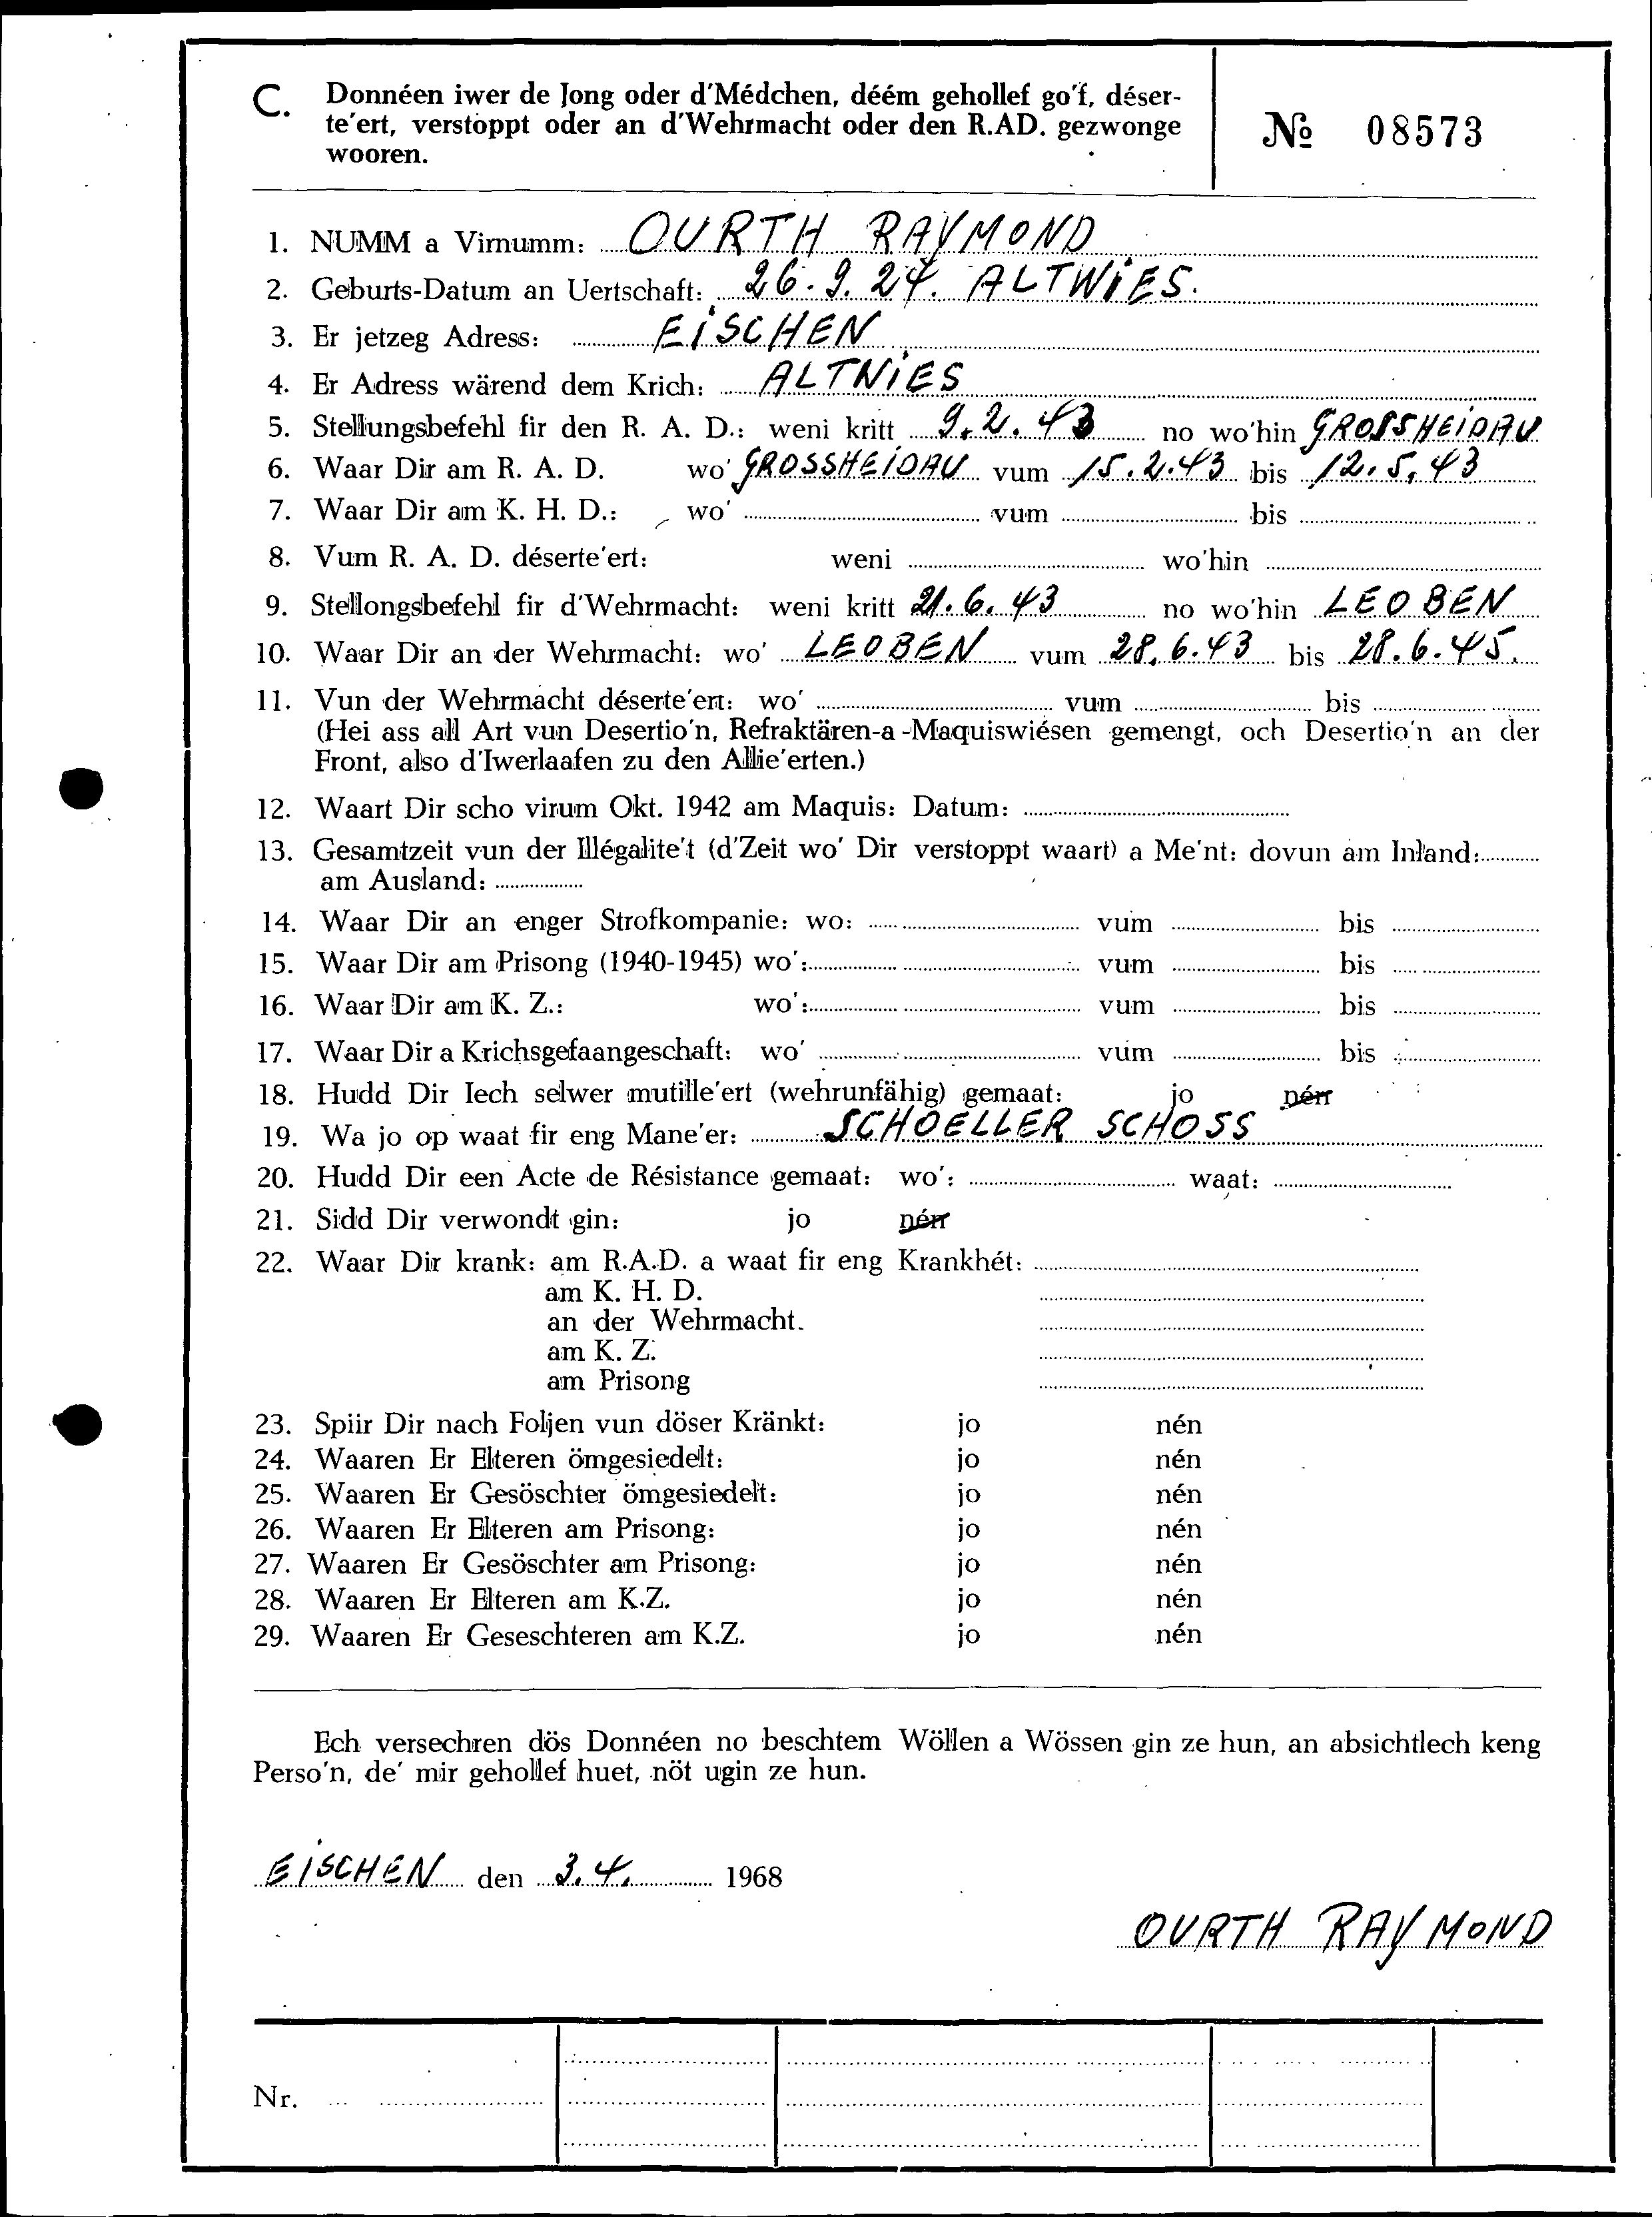 C. Donnéen iwer de Jong oder d'Médchen, déém gehollef go'f, déser-
te'ert, verstoppt oder an d'Wehrmacht oder den R.AD. gezwonge
wooren.
№ 08573
1. NUMM a Virnumm: OURTH RAYMOND
2. Geburts-Datum an Uertschaft: 26.9.24. ALTWiES.
3. Er jetzeg Adress: EiSCHEN
4. Er Adress wärend dem Krich: ALTWiES
5. Stellungsbefehl fir den R. A. D.: weni kritt 9.2.43 no wo'hin GROSSHEiDAU
6. Waar Dir am R. A. D. wo' GROSSHEiDAU vum 15.2.43 bis 12.5.43
7. Waar Dir am K. H. D.: wo' vum bis
8. Vum R. A. D. déserte'ert: weni wo'hin
9. Stellongsbefehl fir d'Wehrmacht: weni kritt 21.6.43 no wo'hin LEOBEN
10. Waar Dir an der Wehrmacht: wo' LEOBEN vum 28.6.43 bis 28.6.45.
11. Vun der Wehrmacht déserte'ert: wo' vum bis
(Hei ass all Art vun Desertio'n, Refraktären-a-Maquiswiésen gemengt, och Desertio'n an der
Front, also d'Iwerlaafen zu den Allie'erten.)
12. Waart Dir scho virum Okt. 1942 am Maquis: Datum:
13. Gesamtzeit vun der Illégalite't (d'Zeit wo' Dir verstoppt waart) a Me'nt: dovun am Inland:
am Ausland:
14. Waar Dir an enger Strofkompanie: wo: vum bis
15. Waar Dir am Prisong (1940-1945) wo': vum bis
16. Waar Dir am K. Z.: wo': vum bis
17. Waar Dir a Krichsgefaangeschaft: wo' vum bis
18. Hudd Dir Iech selwer mutille'ert (wehrunfähig) gemaat: jo nén
19. Wa jo op waat fir eng Mane'er: SCHOELLER SCHOSS
20. Hudd Dir een Acte de Résistance gemaat: wo': waat:
21. Sidd Dir verwondt gin: jo nén
22. Waar Dir krank: am R.A.D. a waat fir eng Krankhét:
am K. H. D.
an der Wehrmacht.
am K. Z.
am Prisong
23. Spiir Dir nach Foljen vun döser Kränkt: jo nén
24. Waaren Er Elteren ömgesiedelt: jo nén
25. Waaren Er Gesöschter ömgesiedelt: jo nén
26. Waaren Er Elteren am Prisong: jo nén
27. Waaren Er Gesöschter am Prisong: jo nén
28. Waaren Er Elteren am K.Z. jo nén
29. Waaren Er Geseschteren am K.Z. jo nén
Ech versechren dös Donnéen no beschtem Wöllen a Wössen gin ze hun, an absichtlech keng
Perso'n, de' mir gehollef huet, nöt ugin ze hun.
EiSCHEN den 3.4. 1968
OURTH RAYMOND
Nr.